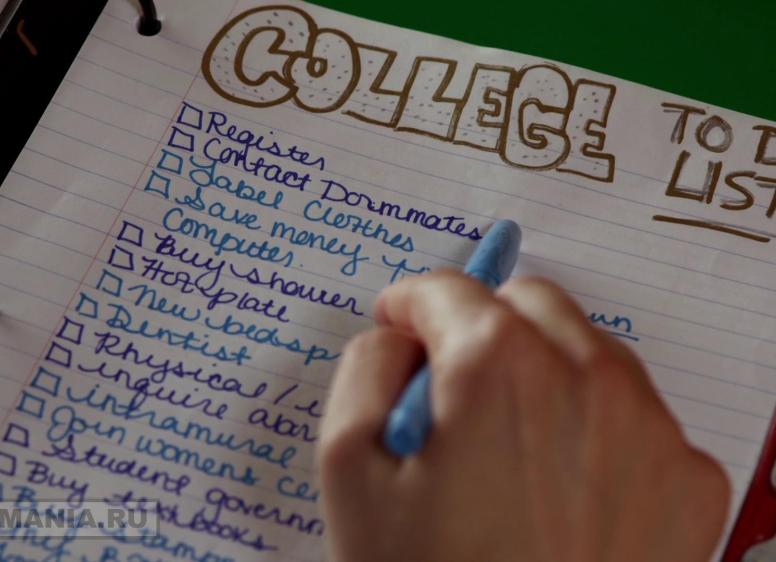 COLLEGE TO D
LIST
Register
Contact Dormmates
Label Clothes
Save money
Computer.
Buy shower
Hot plate
un
New bedsp
Dentist
Physical /
inquire abo
intramural
Join womens ce
Student governm
Buy textbooks
Stamps
MANIA.RU